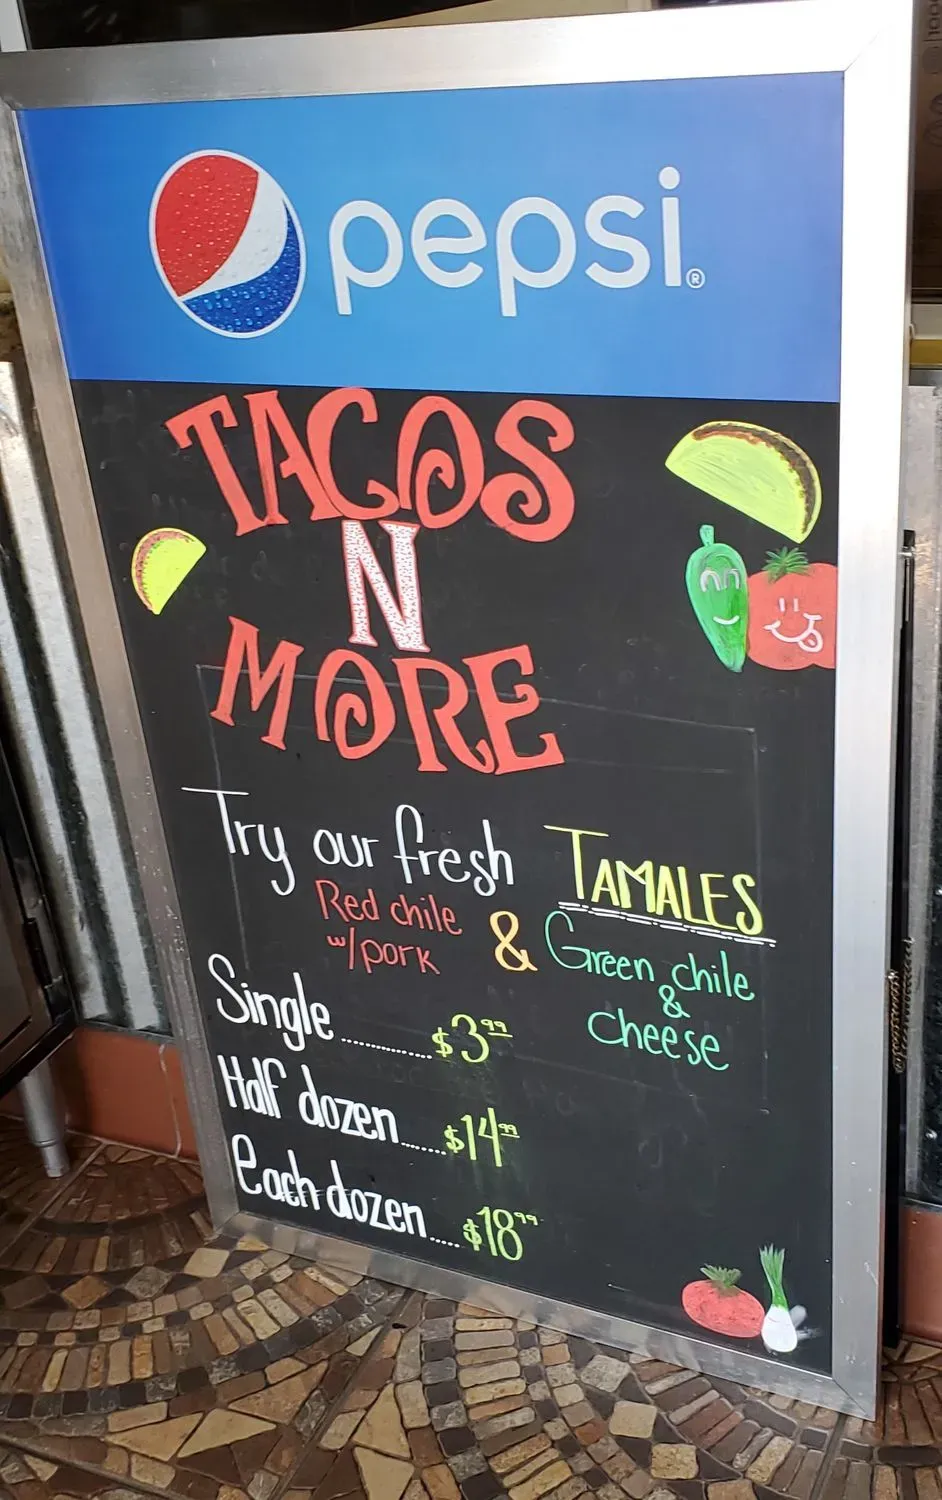 pepsi®
TACOS
N
MORE
Try our fresh TAMALES
Red chile w/pork & Green chile & cheese
Single ............ $3.99
Half dozen ....... $14.99
each dozen ..... $18.99